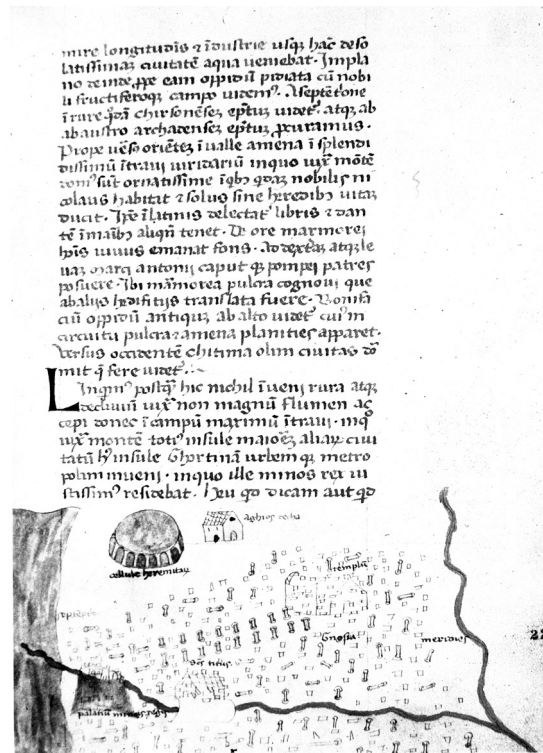 mire longitudīs ⁊ īdustrie usq₃ hāc deso
latissimaꝫ civitatē aqua veniebat. Impla
no deinde ꝓpe eam oppidū pidiata cū nobi
li fructiferoq₃ campo videmꝰ. A septētrione
ī rure qdā chirsonēseꝫ eptuꝫ videt᷑. atq₃ ab
ab austro archadenseꝫ eptuꝫ ꝓcuramus.
Prope v̄so orienteꝫ ī valle amena ī splendi
dissimū ītravi viridariū in quo iuxᵃ mōtē
domꝰ sūt ornatissime ī qbꝰ qdaꝫ nobilis ni
colaus habitat ⁊ solus sine heredibꝰ vitaꝫ
ducit. Hic ī latinis delectat᷑ libris ⁊ dan
tē ī maībꝰ aliqn̄ tenet. De ore marmorei
hīs vivus emanat fons. ad dextāꝫ atq₃ le
vaꝫ marci antonii caput q₃ pompei patres
posuere. Ibi māmorea pulcra cognovi que
ab aliis hedifitiis translata fuere. Bonifa
ciū oppidū antiquū ab alto videt᷑ cuiꝰ in
circuitu pulcra ⁊ amena planities apparet.
Versus occidentē chitima olim civitas dō
mit q̄ fere videt᷑.
Linqmꝰ postq̄ hic nichil īveni rura atq₃
declivium iuxᵃ non magnū flumen ac
cepi donec ī campū maximū ītravi. in quo
iuxᵃ montē totiꝰ insule maioreꝫ aliaꝝ civi
tatū hꝰ insule Ghortinā urbem q₃ metro
polim inveni. in quo ille minos rex iu
stissimꝰ residebat. Heu qd dicam aut qd
aghios
cellule heremitaꝝ
templa
Gnosia
meridies
scs titus
palatiū minois regis
22